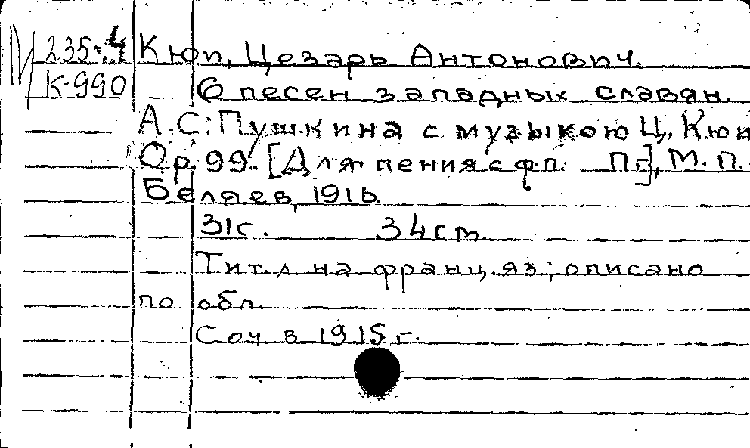 М 235:4 Кюи, Цезарь Антонович.
К-990 6 песен западных славян
А.С. Пушкина с музыкою Ц. Кюи
Ор. 99. [Для пения с ф.п. Пг], М.П.
Беляев, 1916.
31с. 34см.
Тит. л на франц. яз; описано
по обл.
Соч в 1915 г.